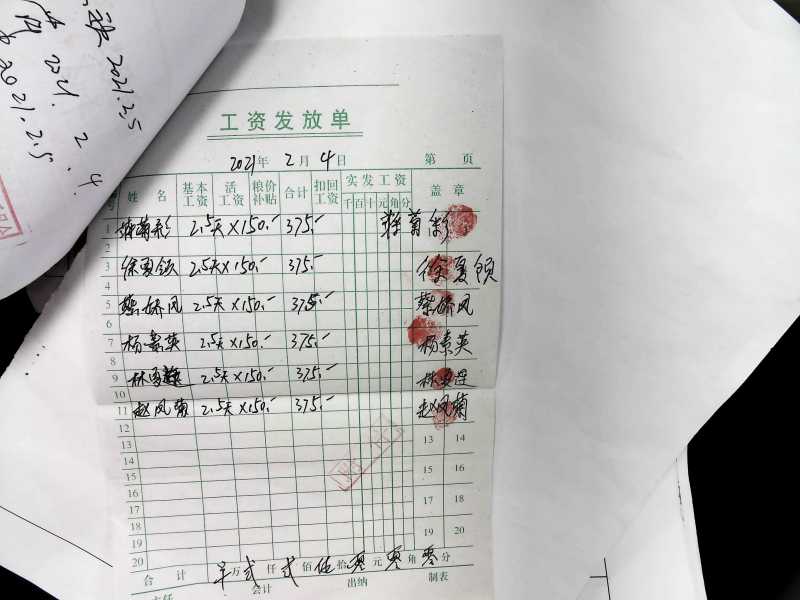 2021.2.5
2021.2.4
2021.2.5
工资发放单
2021年 2月 4日 第 页
姓名 基本工资 活工资 粮价补贴 合计 扣回工资 实发工资 千百十元角分 盖章
1 菊彩 2.5天×150.- 375.- 菊彩
2
3 徐夏领 2.5天×150.- 375.- 徐夏领
4
5 蔡娇凤 2.5天×150.- 375.- 蔡娇凤
6
7 杨素英 2.5天×150.- 375.- 杨素英
8
9 林 2.5天×150.- 375.- 林
10
11 赵凤菊 2.5天×150.- 375.- 赵凤菊
12
13 13 14
14
15 15 16
16
17 17 18
18
19 19 20
20
合计 万贰仟贰佰伍拾零元零角零分
会计 出纳 制表